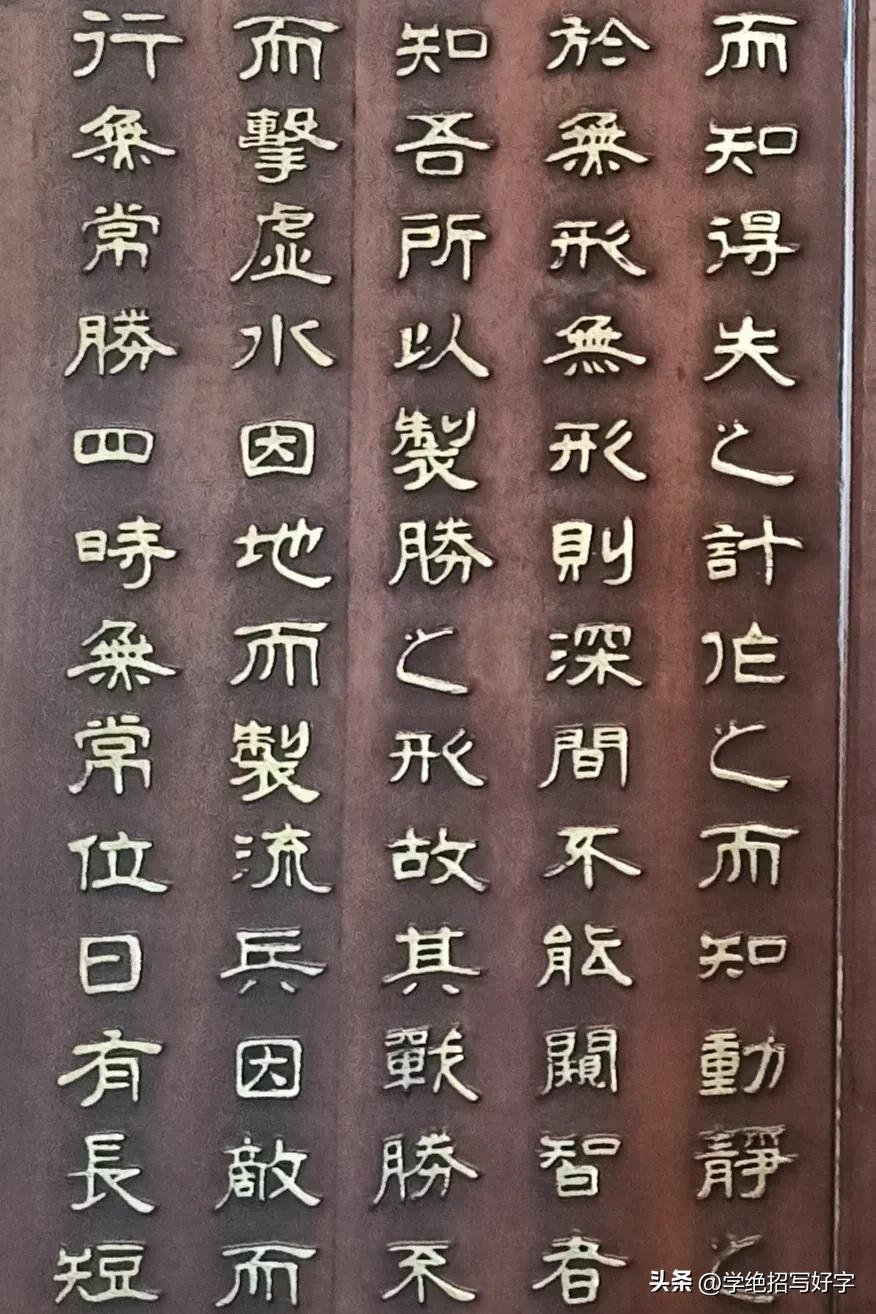 而知得失之計作之而知動靜之
於無形無形則深間不能闚智者
知吾所以製勝之形故其戰勝不
而擊虛水因地而製流兵因敵而
行無常勝四時無常位日有長短
头条 @学绝招写好字